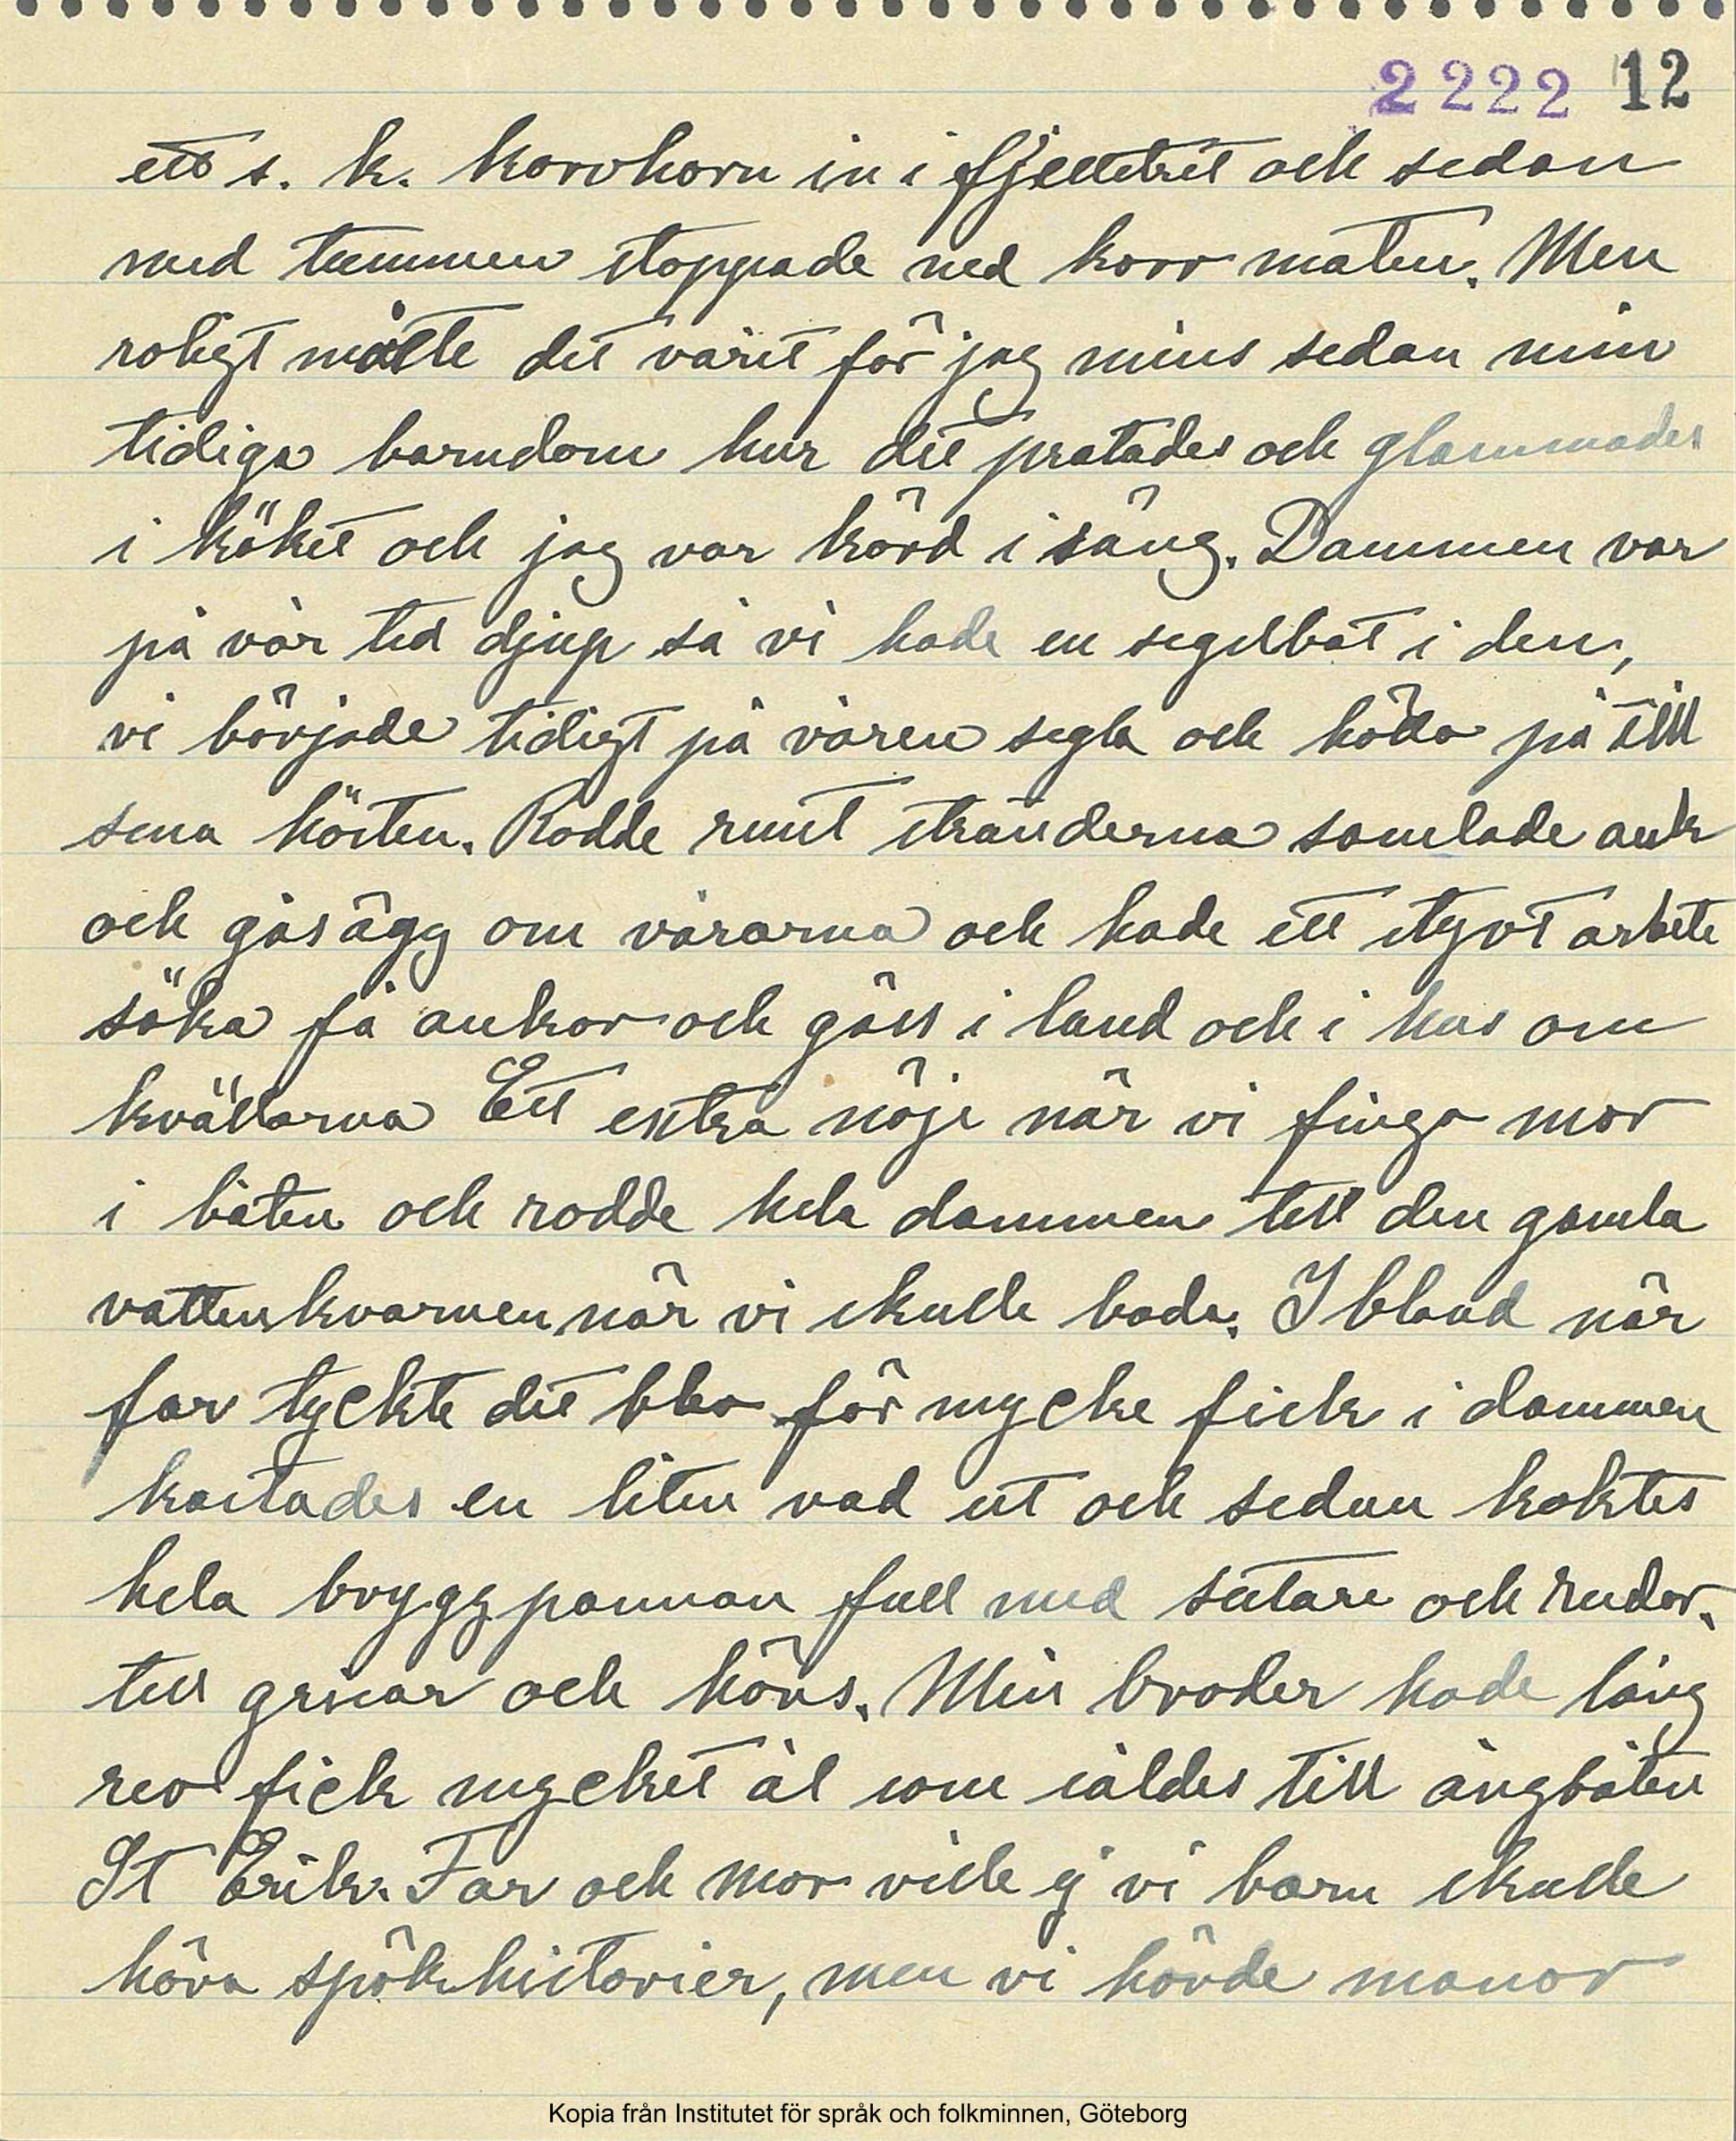 2222 12
ett s. k. korvhorn in i fjelstret och sedan
med tummen stoppade ned korv maten. Men
roligt måtte det varit för jag mins sedan min
tidiga barndom hur det pratades och glammades
i köket och jag var körd i säng. Dammen var
på vår tid djup så vi hade en segelbåt i den,
vi började tidigt på våren segla och höllo på till
sena hösten. Rodde runt stränderna samlade ank
och gåsägg om vårarna och hade ett styvt arbete
söka få ankor och gäss i land och i hus om
kvällarna Ett extra nöje när vi fingo mor
i båten och rodde hela dammen till den gamla
vattenkvarnen när vi skulle bada. Ibland när
far tyckte det blev för mycke fisk i dammen
kastades en liten vad ut och sedan koktes
hela bryggpannan full med sutare och rudor.
till grisar och höns. Min broder hade lång
rev fick mycket ål som såldes till ångbåten
St Erik. Far och mor ville ej vi barn skulle
höra spökhistorier, men vi hörde manor
Kopia från Institutet för språk och folkminnen, Göteborg